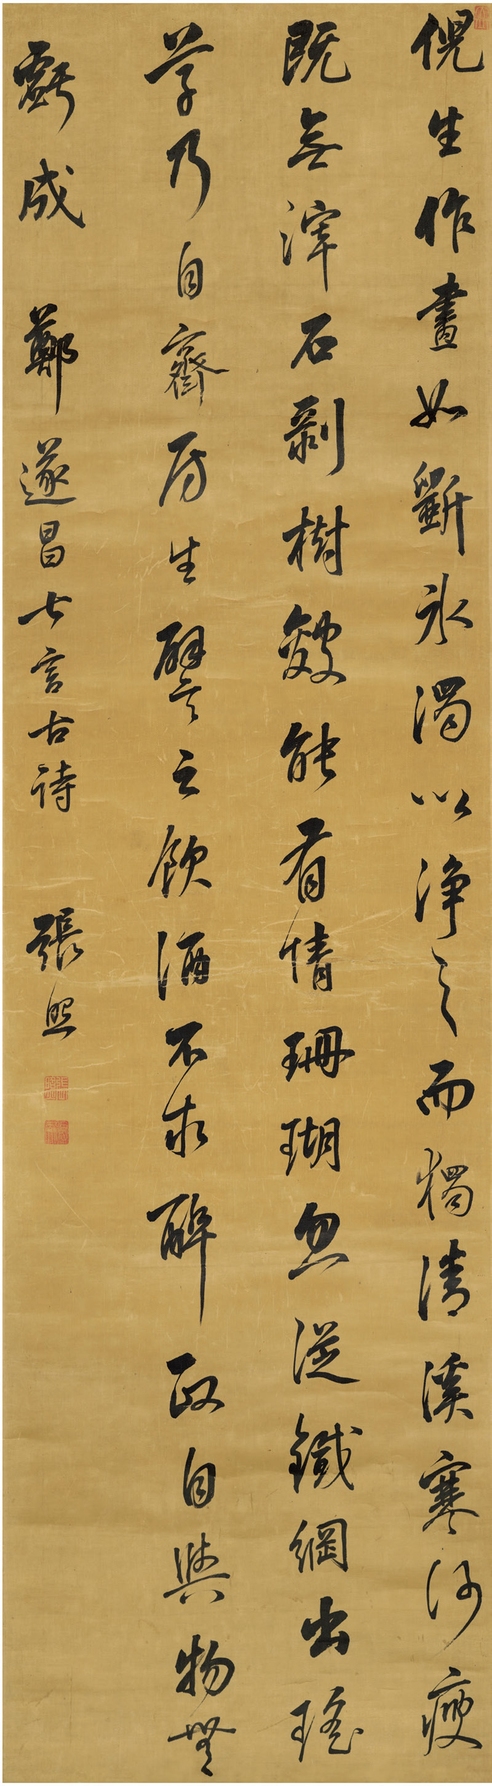 倪生作畫如斲冰濁以淨之而獨清溪寒沙瘦
既無滓石剝樹皴能有情珊瑚忽從鐵網出瑤
草乃自齋房生譬之飲酒不求醉政自與物無
虧成　鄭遂昌七言古詩　張照